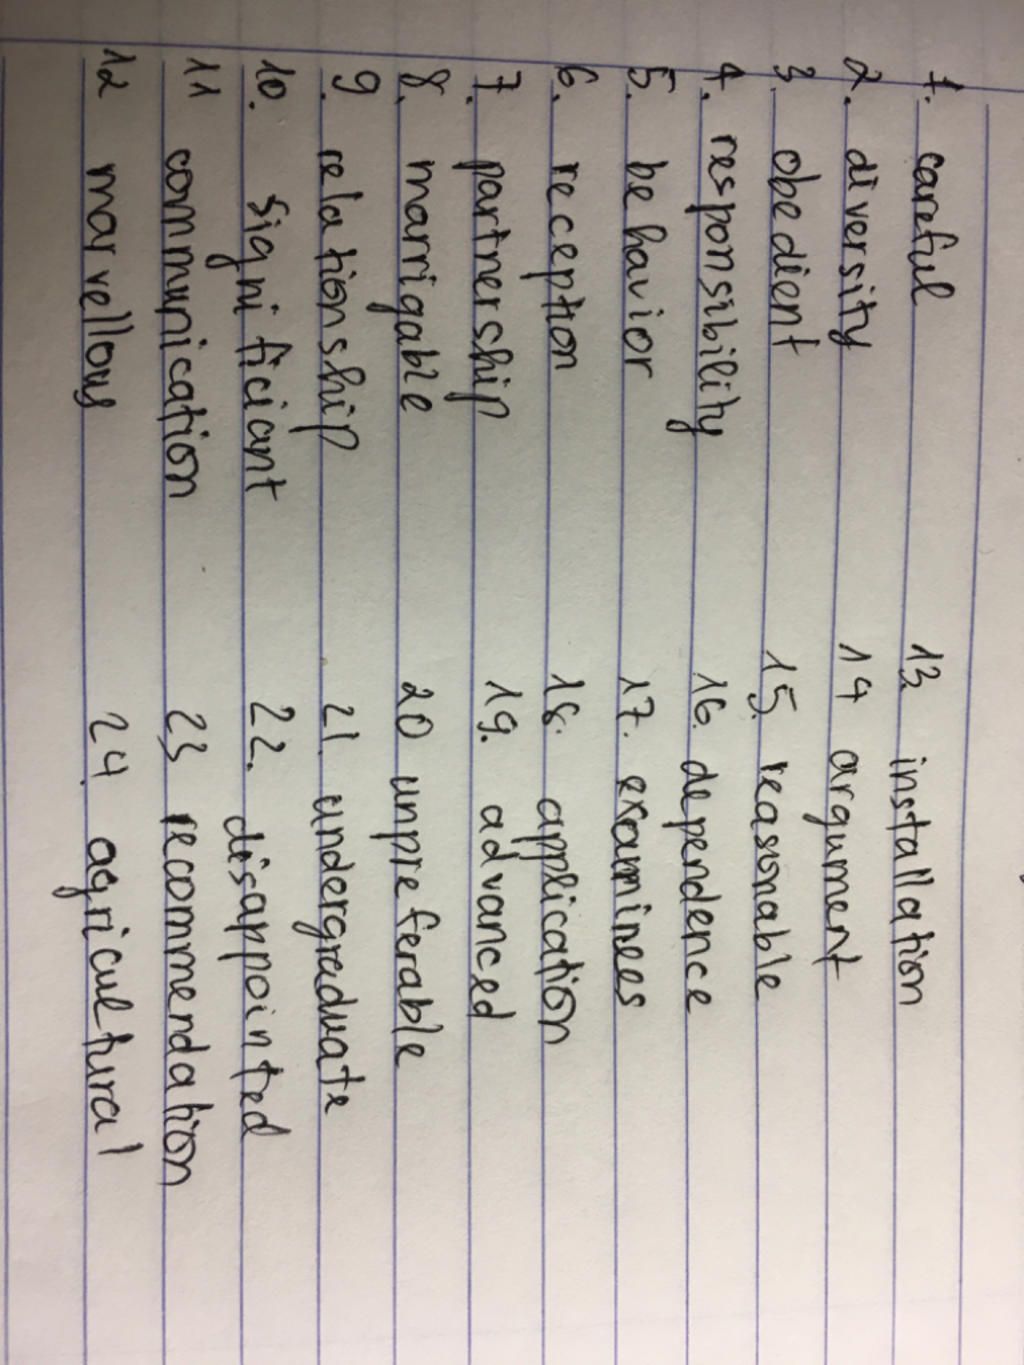 1. careful
2. diversity
3. obedient
4. responsibility
5. behavior
6. reception
7. partnership
8. marrigable
9. relationship
10. significiant
11 communication
12 marvellous
13. installation
14 argument
15. reasonable
16. dependence
17. examinees
18. application
19. advanced
20 unpreferable
21. undergraduate
22. disappointed
23 recommendation
24. agricultural